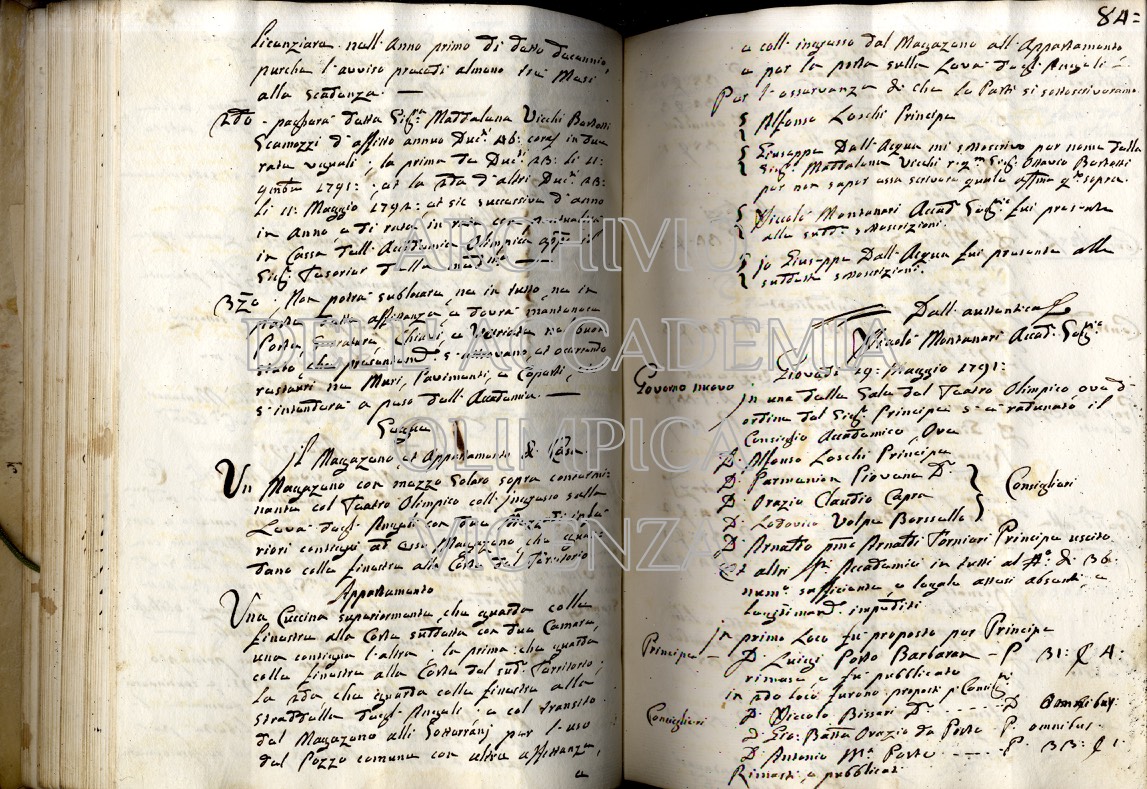 licenziare nell'Anno primo di detto decennio,
purche l'avviso preceda almeno tre Mesi
alla scadenza. —
2do - pagherà detta Sig.ra Maddalena Vecchi Bortotti
Scamozzi d'affitto annuo Duc.ti 46: cor.ti in due
rate uguali; la prima de Duc.ti 23: li 11:
9mbre 1791: et la 2da d'altri Duc.ti 23:
li 11: Maggio 1792: et sic successive d'anno
in Anno e di rata in rata con
in Cassa dell'Accademia Olimpica
Sig.r Tesorier della med.ma —
3zo: Non potrà sublocare, ne in tutto, ne in
parte tale affittanza, e dovrà mantenere
Porte, Serrature, Chiavi, e Vetriate nel buon
stato, che presentem.te s'attrovano, et occorrendo
restauri ne Muri, Pavimenti, e Coperti,
s'intenderà a peso dell'Accademia. —
Segue
Il Magazeno, et Appartamento di Casa
Un Magazeno con mezzo Solaro sopra
col Teatro Olimpico coll'ingresso sulla
Leva degl'Angeli con due
contigui ad esso Magazeno che guar-
dano colle finestre alla Corte del Territorio
Appartamento
Una Cuccina superiormente, che guarda colle
finestre alla Corte sud.ta con due Camere,
una contigua l'altra: la prima che guarda
colle finestre alla Corte del sud.o Territorio:
la 2da che guarda colle finestre alla
Stradella degl'Angeli, e col transito
dal Magazeno alli Sotterranj per l'uso
del Pozzo comune con altra affittanza,
e
84=
e coll'ingresso dal Magazeno all'Appartamento
e per la porta sulla Leva degl'Angeli —
Per l'osservanza di che le Parti si sottoscriveranno.
Alfonso Loschi Principe
Giuseppe Dall'Acqua mi sottoscrivo per nome della
Sig.ra Maddalena Vecchi Ottavio Bortotti
per non saper essa scrivere quale afferma q.to sopra.
Niccolò Montanari Accad. Seg.rio fui presente
alle sud.te sottoscrizioni.
Io Giuseppe Dall'Acqua fui presente alle
suddette sottoscrizioni
Dall'autentica
Niccolò Montanari Accad. Seg.rio
Giovedì 19: Maggio 1791:
Governo nuovo
In una delle Sale del Teatro Olimpico, ove d'
ordine del Sig.r Principe s'è radunato il
Consiglio Accademico, Ove
D: Alfonso Loschi Principe
D: Parmenion Piovene Dr
D: Orazio Claudio Capra
Consiglieri
D: Lodovico Volpe Borsello
D: Arnaldo pmo Arnaldi Tornieri Principe uscito
Et altri SS.i Accademici in tutti al N.o di 36.
num.o sufficiente, e legale attesi absenti e
legittimam.te impediti
In primo loco fu proposto per Principe
Principe —
D. Luigi Porto Barbaran — P. 31: C 4:
rimase, e fu pubblicato
in 2do loco furono proposti p. Consig.ri
Consiglieri
D. Niccolò Bissari Dr - - - - - P. Omnibus.
D. Gio: Batta Orazio da Porto P. omnibus.
D. Antonio M.a Porto - - - - P. 33: C 1:
Rimasti, e pubblicati
ARCHIVIU
DELL'ACCADEMIA
OLIMPICA
VICENZA